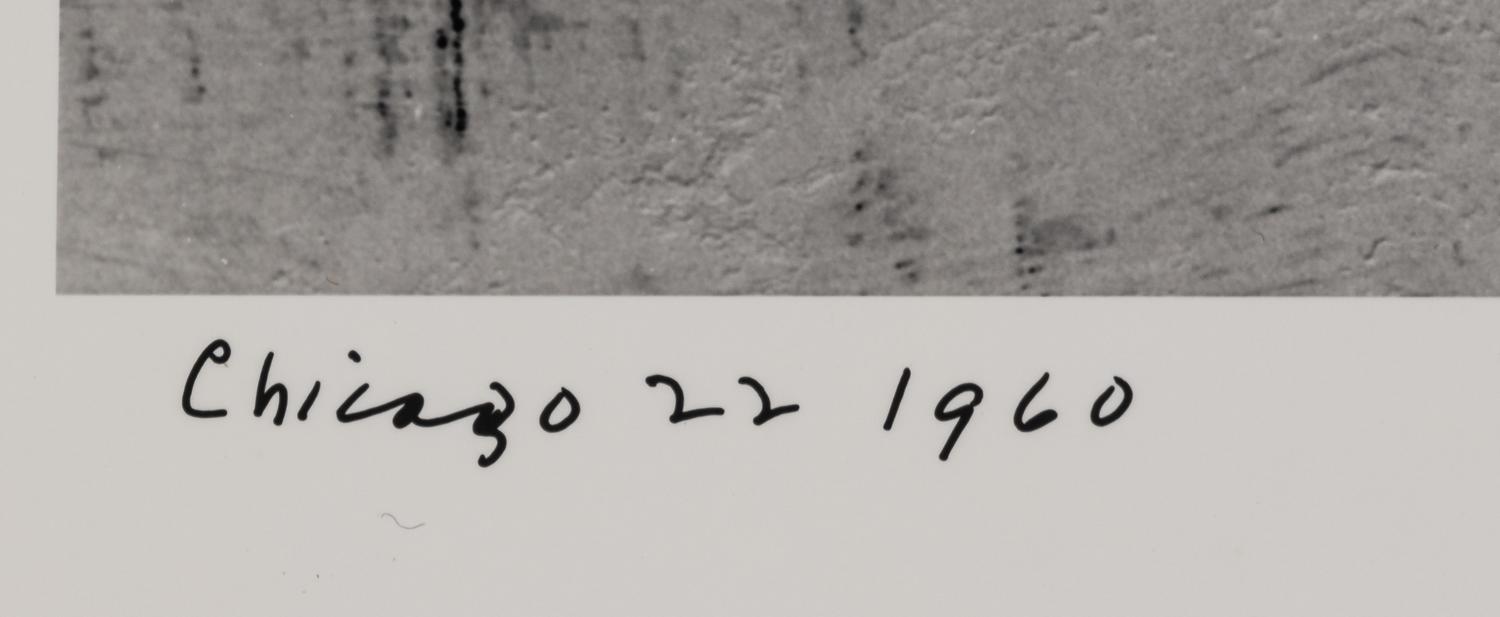 Chicago 22 1960